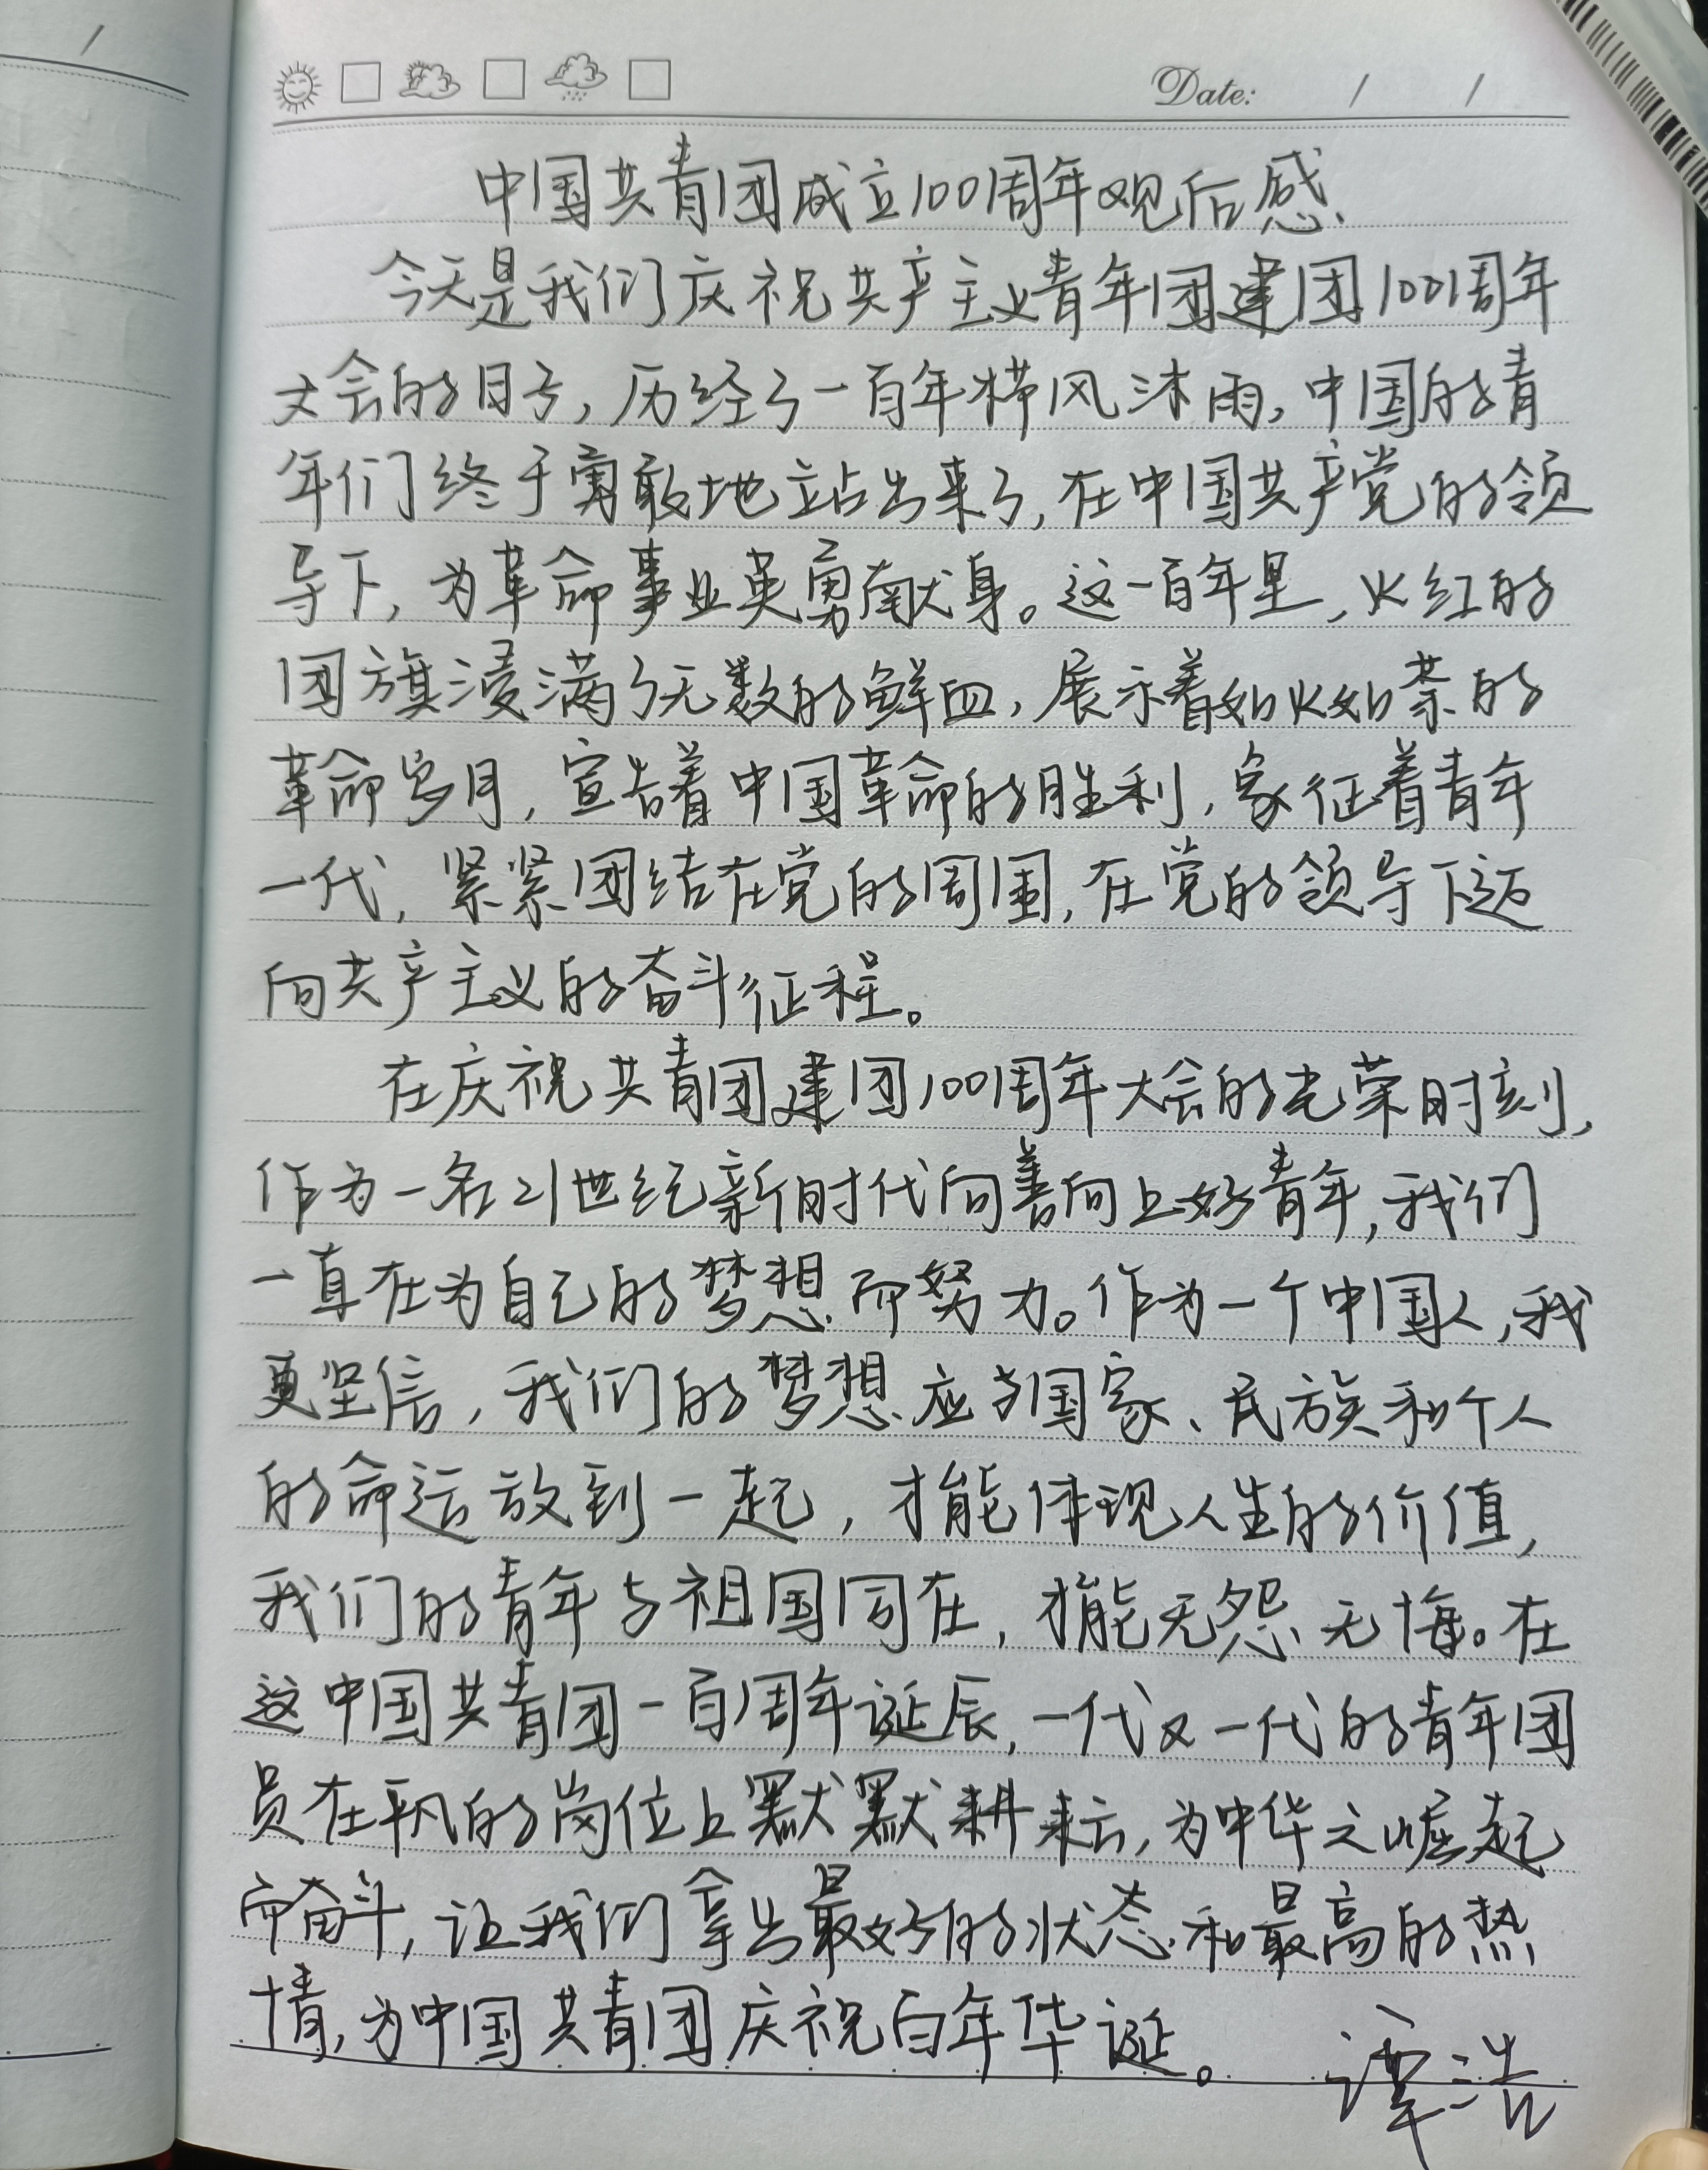 Date: / /
中国共青团成立100周年观后感
今天是我们庆祝共产主义青年团建团100周年
大会的日子,历经了一百年栉风沐雨,中国的青
年们终于勇敢地站出来了,在中国共产党的领
导下,为革命事业英勇献身。这一百年里,火红的
团旗浸满了无数的鲜血,展示着如火如荼的
革命岁月,宣告着中国革命的胜利,象征着青年
一代,紧紧团结在党的周围,在党的领导下迈
向共产主义的奋斗征程。
在庆祝共青团建团100周年大会的光荣时刻,
作为一名21世纪新时代向善向上好青年,我们
一直在为自己的梦想而努力。作为一个中国人,我
更坚信,我们的梦想应与国家、民族和个人
的命运放到一起,才能体现人生的价值,
我们的青年与祖国同在,才能无怨无悔。在
这中国共青团一百周年诞辰,一代又一代的青年团
员在平凡的岗位上默默耕耘,为中华之崛起
而奋斗,让我们拿出最好的状态和最高的热
情,为中国共青团庆祝百年华诞。 谭浩